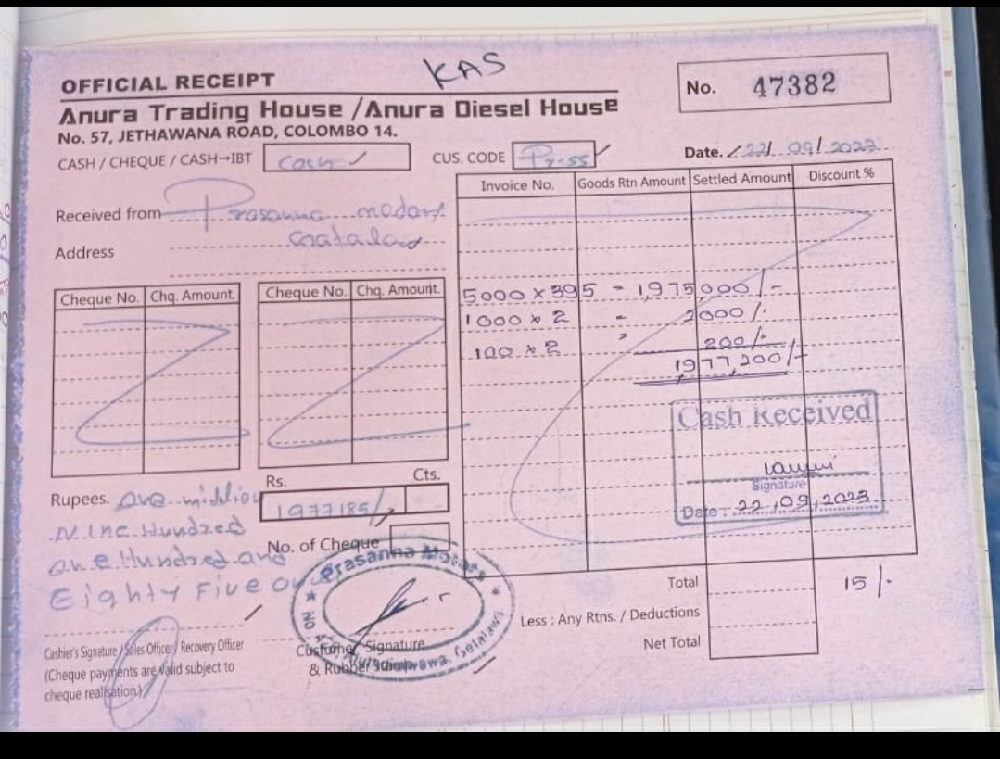 KAS
OFFICIAL RECEIPT
No. 47382
Anura Trading House /Anura Diesel House
No. 57, JETHAWANA ROAD, COLOMBO 14.
CASH / CHEQUE / CASH→IBT Cash
CUS. CODE
Date. 22/09/2023
Invoice No. Goods Rtn Amount Settled Amount Discount %
Received from Prasanna
Address
Cheque No. Chq. Amount Cheque No. Chq. Amount
5000 x 395 - 1,975000/-
1000 x 2 - 2000/-
100 x 2 200/-
1977,200/-
Cash Received
Signature
Date : 22,09,2023
Rs. Cts.
1977185/-
Rupees. One million
Nine Hundred
one Hundred and
Eighty Five
No. of Cheque
Prasanna Motors
Total 15/-
Less : Any Rtns. / Deductions
Net Total
Cashier's Signature / Sales Officer / Recovery Officer
(Cheque payments are valid subject to
cheque realisation.)
Customer Signature
& Rubber